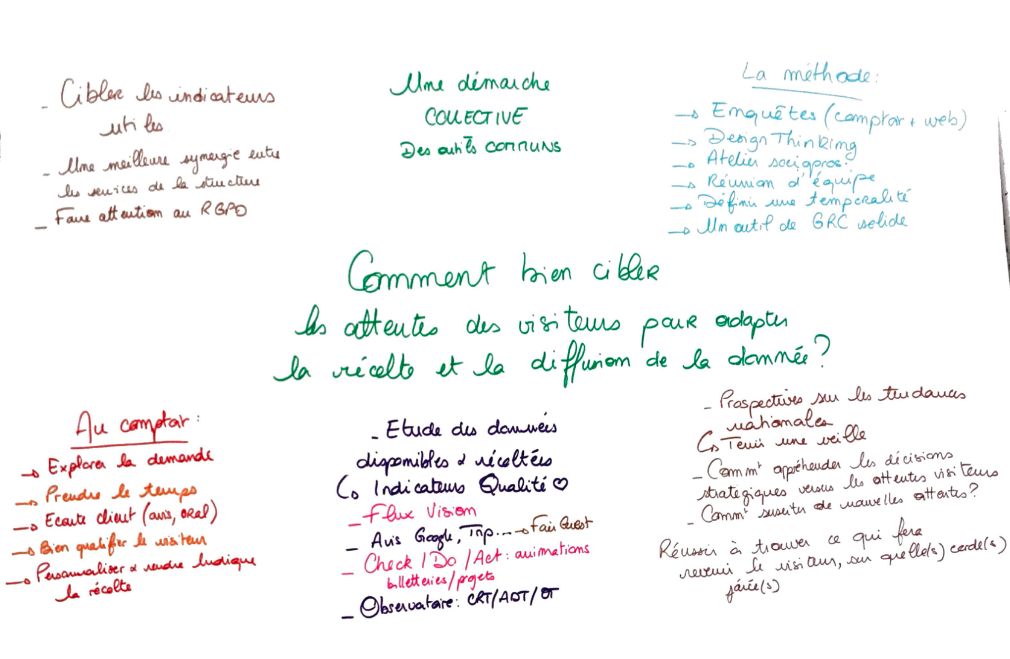 - Cibler les indicateurs
utiles
- Une meilleure synergie entre
les services de la structure
- Faire attention au RGPD
Une démarche
COLLECTIVE
Des outils communs
La méthode :
→ Enquêtes (comptoir + web)
→ Design Thinking
→ Atelier sociopros.
→ Réunion d'équipe
→ Définir une temporalité
→ Un outil de GRC solide
Comment bien cibler
les attentes des visiteurs pour adapter
la récolte et la diffusion de la donnée ?
Au comptoir :
→ Explorer la demande
→ Prendre le temps
→ Ecoute client (avis, oral)
→ Bien qualifier le visiteur
→ Personnaliser & rendre ludique
la récolte
- Etude des données
disponibles & récoltées
↳ Indicateurs Qualité ♡
- Flux Vision
- Avis Google, Trip... → Fair Guest
- Check / Do / Act : animations
billetteries / projets
- Observatoire : CRT/ADT/OT
- Prospectives sur les tendances
nationales
↳ Tenir une veille
- Commt appréhender les décisions
stratégiques versus les attentes visiteurs
- Commt susciter de nouvelles attentes ?
Réussir à trouver ce qui fera
revenir le visiteur, sur quelle(s) corde(s)
jouer